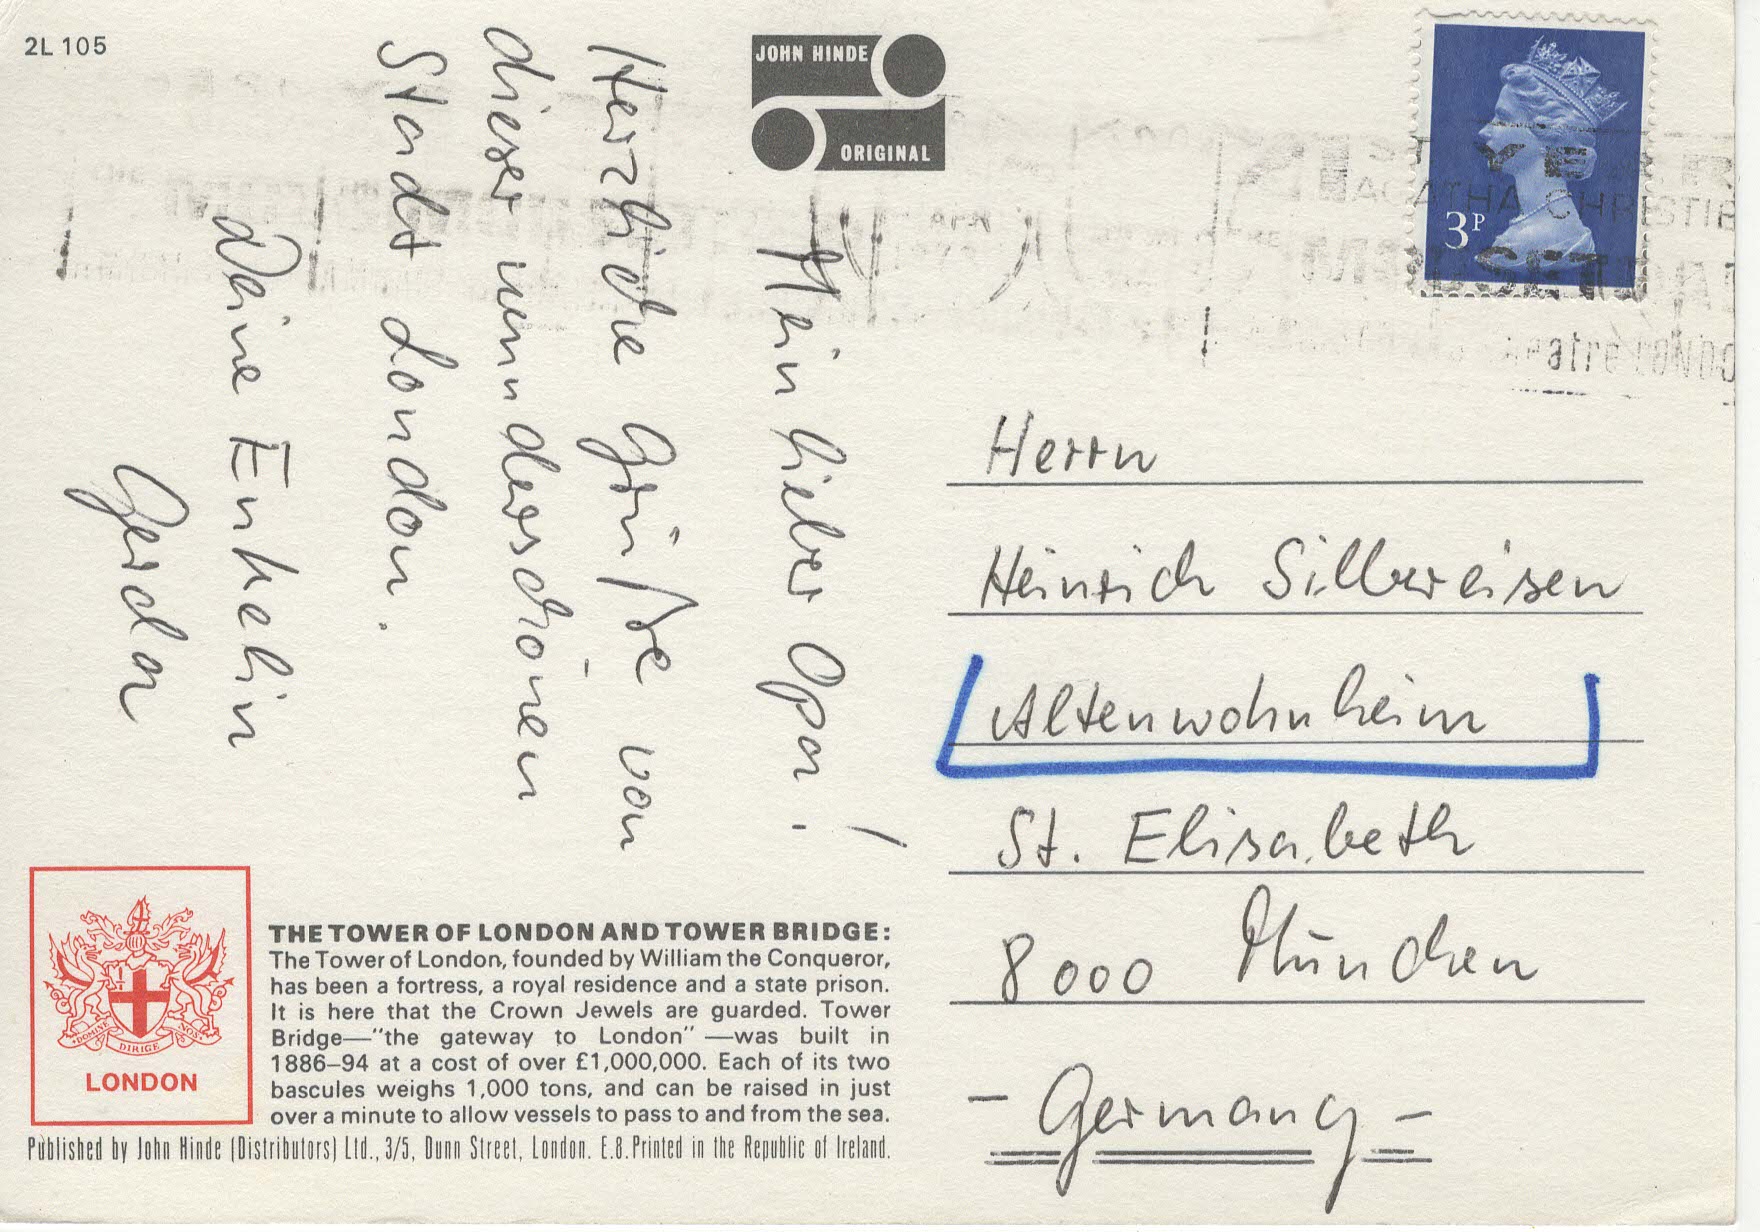 2L 105
JOHN HINDE
ORIGINAL
3P
AGATHA CHRISTIE
Mein lieber Opa!
Herzliche Grüße von
dieser wunderschönen
Stadt London.
Deine Enkelin
Gerda
Herrn
Heinrich Silbereisen
Altenwohnheim
St. Elisabeth
8000 München
- Germany -
DOMINE DIRIGE NOS
LONDON
THE TOWER OF LONDON AND TOWER BRIDGE:
The Tower of London, founded by William the Conqueror,
has been a fortress, a royal residence and a state prison.
It is here that the Crown Jewels are guarded. Tower
Bridge—"the gateway to London" —was built in
1886–94 at a cost of over £1,000,000. Each of its two
bascules weighs 1,000 tons, and can be raised in just
over a minute to allow vessels to pass to and from the sea.
Published by John Hinde (Distributors) Ltd., 3/5, Dunn Street, London. E.8. Printed in the Republic of Ireland.